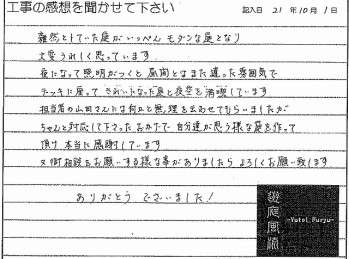 工事の感想を聞かせて下さい
記入日 21年10月1日
雑然としていた庭がいっぺん モダンな庭となり
大変うれしく思っています。
夜になって照明がつくと 昼間とはまた違った雰囲気で
デッキに座って きれいになった庭と夜空を満喫しています
担当者の山田さんには何かと無理を云わせてもらいましたが
ちゃんと対応して下さった おかげで 自分達が思う様な庭を作って
頂け 本当に感謝しています
又御相談をお願いする様な事がありましたら よろしくお願い致します
ありがとう ございました!
遊庭風流
-Yutei Furyu-